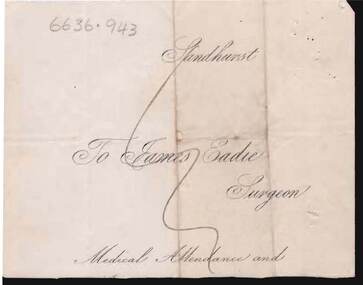 6636.943
Sandhurst
To James Eadie
Surgeon
Medical Attendance and